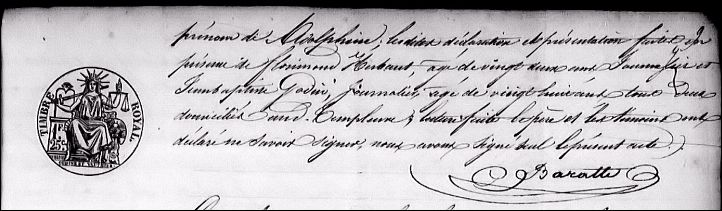 prénom de Adolphine; lesdites déclaration et présentation faites en
présence de Florimond Herbaut, age de vingt deux ans Journalier et
Jeanbaptiste Godin, Journalier, age de vingt huit ans tous deux
domiciliés aud. Templeuve & lecture faite le père et les témoins ont
declaré ne savoir signer, nous avons signé seul le présent acte.
Baratte
TIMBRE ROYAL
1F.
25c.